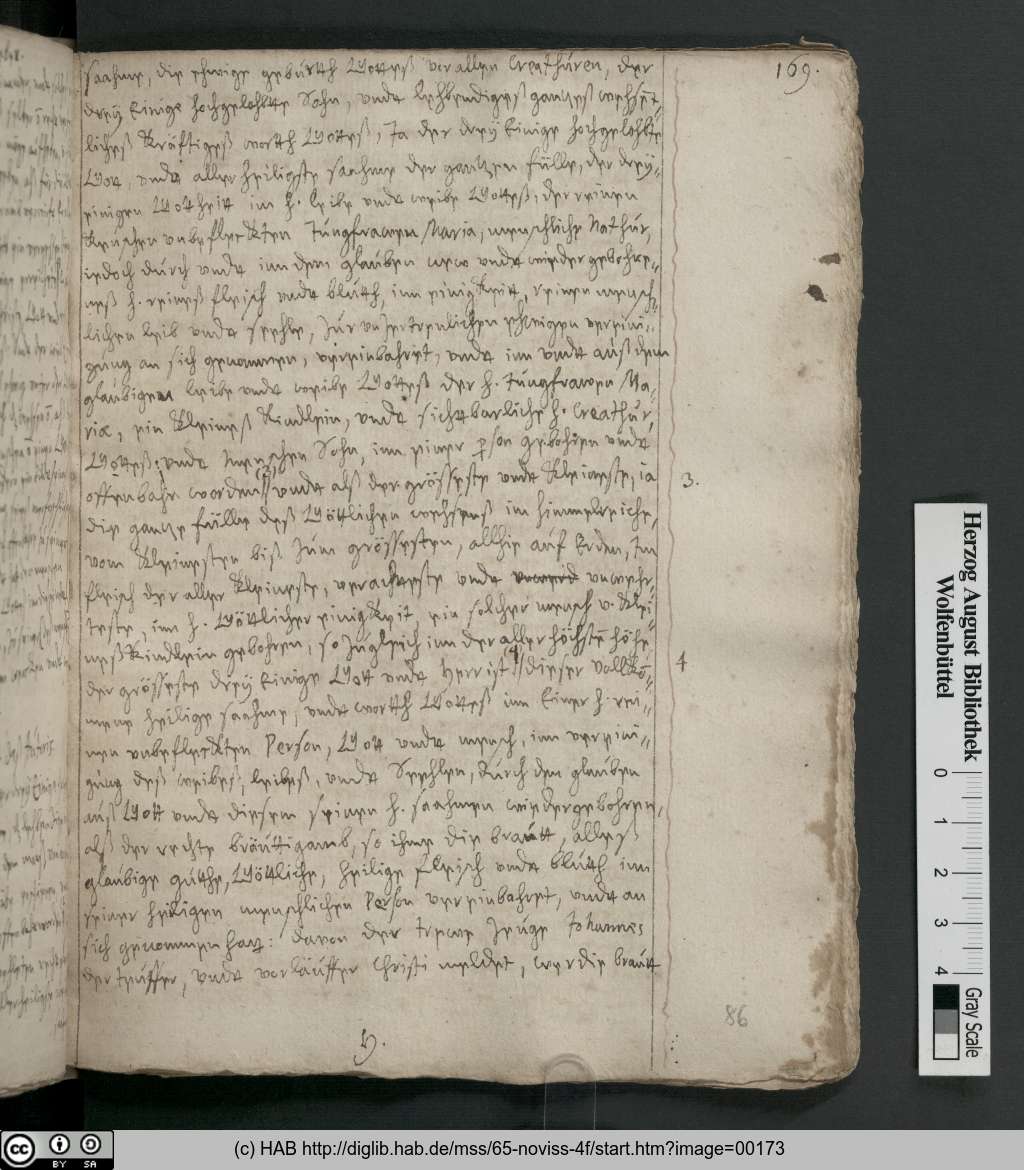 169.
saahme, die ehwige gebúrtth Gottes vor allen Creathúren, der
dreÿ Einige hochgelohbtte Sohn, vnndt lehbendiges gantzes wehsent=
liches Kräftiges wortth Gottes, Ja der dreÿ Einige hochgelohbte
Gott, vnndt aller heiligste saahme der gantzen fülle, der dreÿ=
einigen Gottheitt im h. leibe vnndt weibe Gottes, der reinen
Keuschen vnbefleckten Júngfrawen Maria, menschliche Nathúr,
iedoch dúrch vnndt inn dem glauben new vnndt wiedergebohre=
nes h. reines fleisch vnndt blúth, inn einigkeitt, reinen mensch=
lichen leib vnndt seehle, Zúr vnzertrenlichen ehwigen vereini=
gúng an sich genommen, vereinbahret, vnndt inn vnndt aúß dem
glaúbigenn leibe vnndt weibe Gottes der h. Júngfrawen Ma=
riæ, ein Kleines Kindlein, vnndt sichtbarliche h. Creathúr,
Gottes, vnndt Menschen Sohn, inn einer person gebohren vnndt
offenbahr worden, (3) vnndt alß der grösseste vnndt Kleineste, ia
die gantze fülle deß Göttlichen wehsens im himmelreiche,
vom Kleinesten biß Zúm grössesten, allhie aúf Erden, Im
fleisch der aller Kleineste, verachteste vnndt vnwehr=
teste, inn h. Göttlicher einigkeit, ein solcher mensch v. Klei=
nes Kindlein gebohren, so Zúgleich inn der aller höchsten höhe
der grösseste dreÿ Einige Gott vnndt herr ist, (4) dieser Vollkom=
mene heilige saahme, vnndt wortth Gottes inn Einer h. rei=
nen vnbefleckten Person, Gott vnndt mensch, inn verini=
gúng deß weibes, leibes, vnndt Seehlen, dúrch den glauben
aúß Gott vnndt diesem seinen h. saahmen wiedergebohren,
alß der rechte bräúttigamb, so ihme die braútt, alles
glaúbige gúthe, Göttliche, heilige fleisch vnndt blúth inn
reiner heiligen menschlichen Person vereinbahret, vnndt an
sich genommen hatt: davon der trewe Zeúge Johannes
der teúffer, vnndt vorläúffer Christi meldet, wer die braútt
3.
4
y.
86
Herzog August Bibliothek
Wolfenbüttel
0 1 2 3 4
Gray Scale
(c) HAB http://diglib.hab.de/mss/65-noviss-4f/start.htm?image=00173
cc BY SA